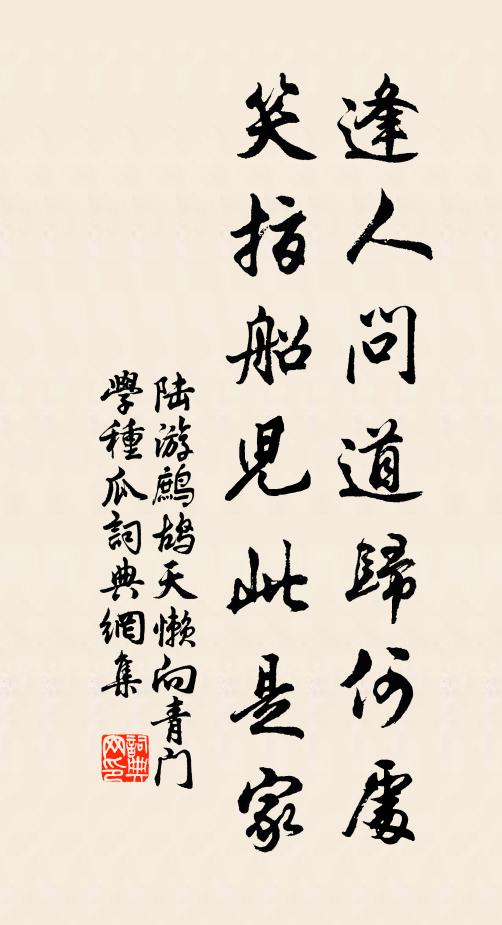 逢人問道歸何處
笑指船兒此是家
陆游鷓鴣天懶向青门
學種瓜詞典網集
詞典网印